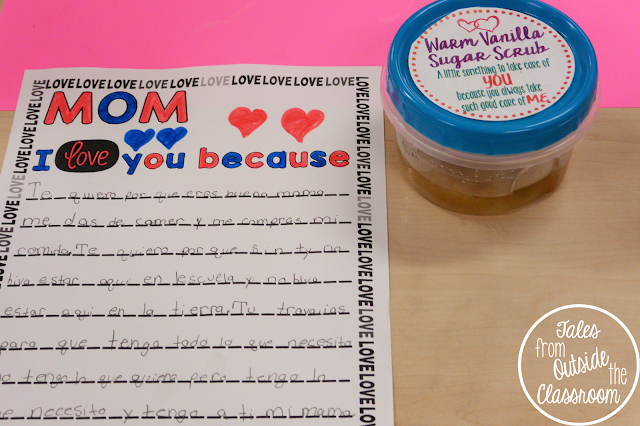 LOVE LOVE LOVE LOVE LOVE LOVE LOVE LOVE LOVE LOVE
MOM
I love you because
Te quiero por que eres buena mama
me das de comer y me compras mi
comida. Te quiero por que sin ty on
hiva estar aqui en lescuela y no hiva
estar aqui en la tierra. Tu travajas
para que tenga todo lo que necesito
no tengo que quiero pero tengo lo
necesito y tengo a ti mi mama
Warm Vanilla
Sugar Scrub
A little something to take care of
YOU
because you always take
such good care of ME.
Tales
from
Outside
the
Classroom